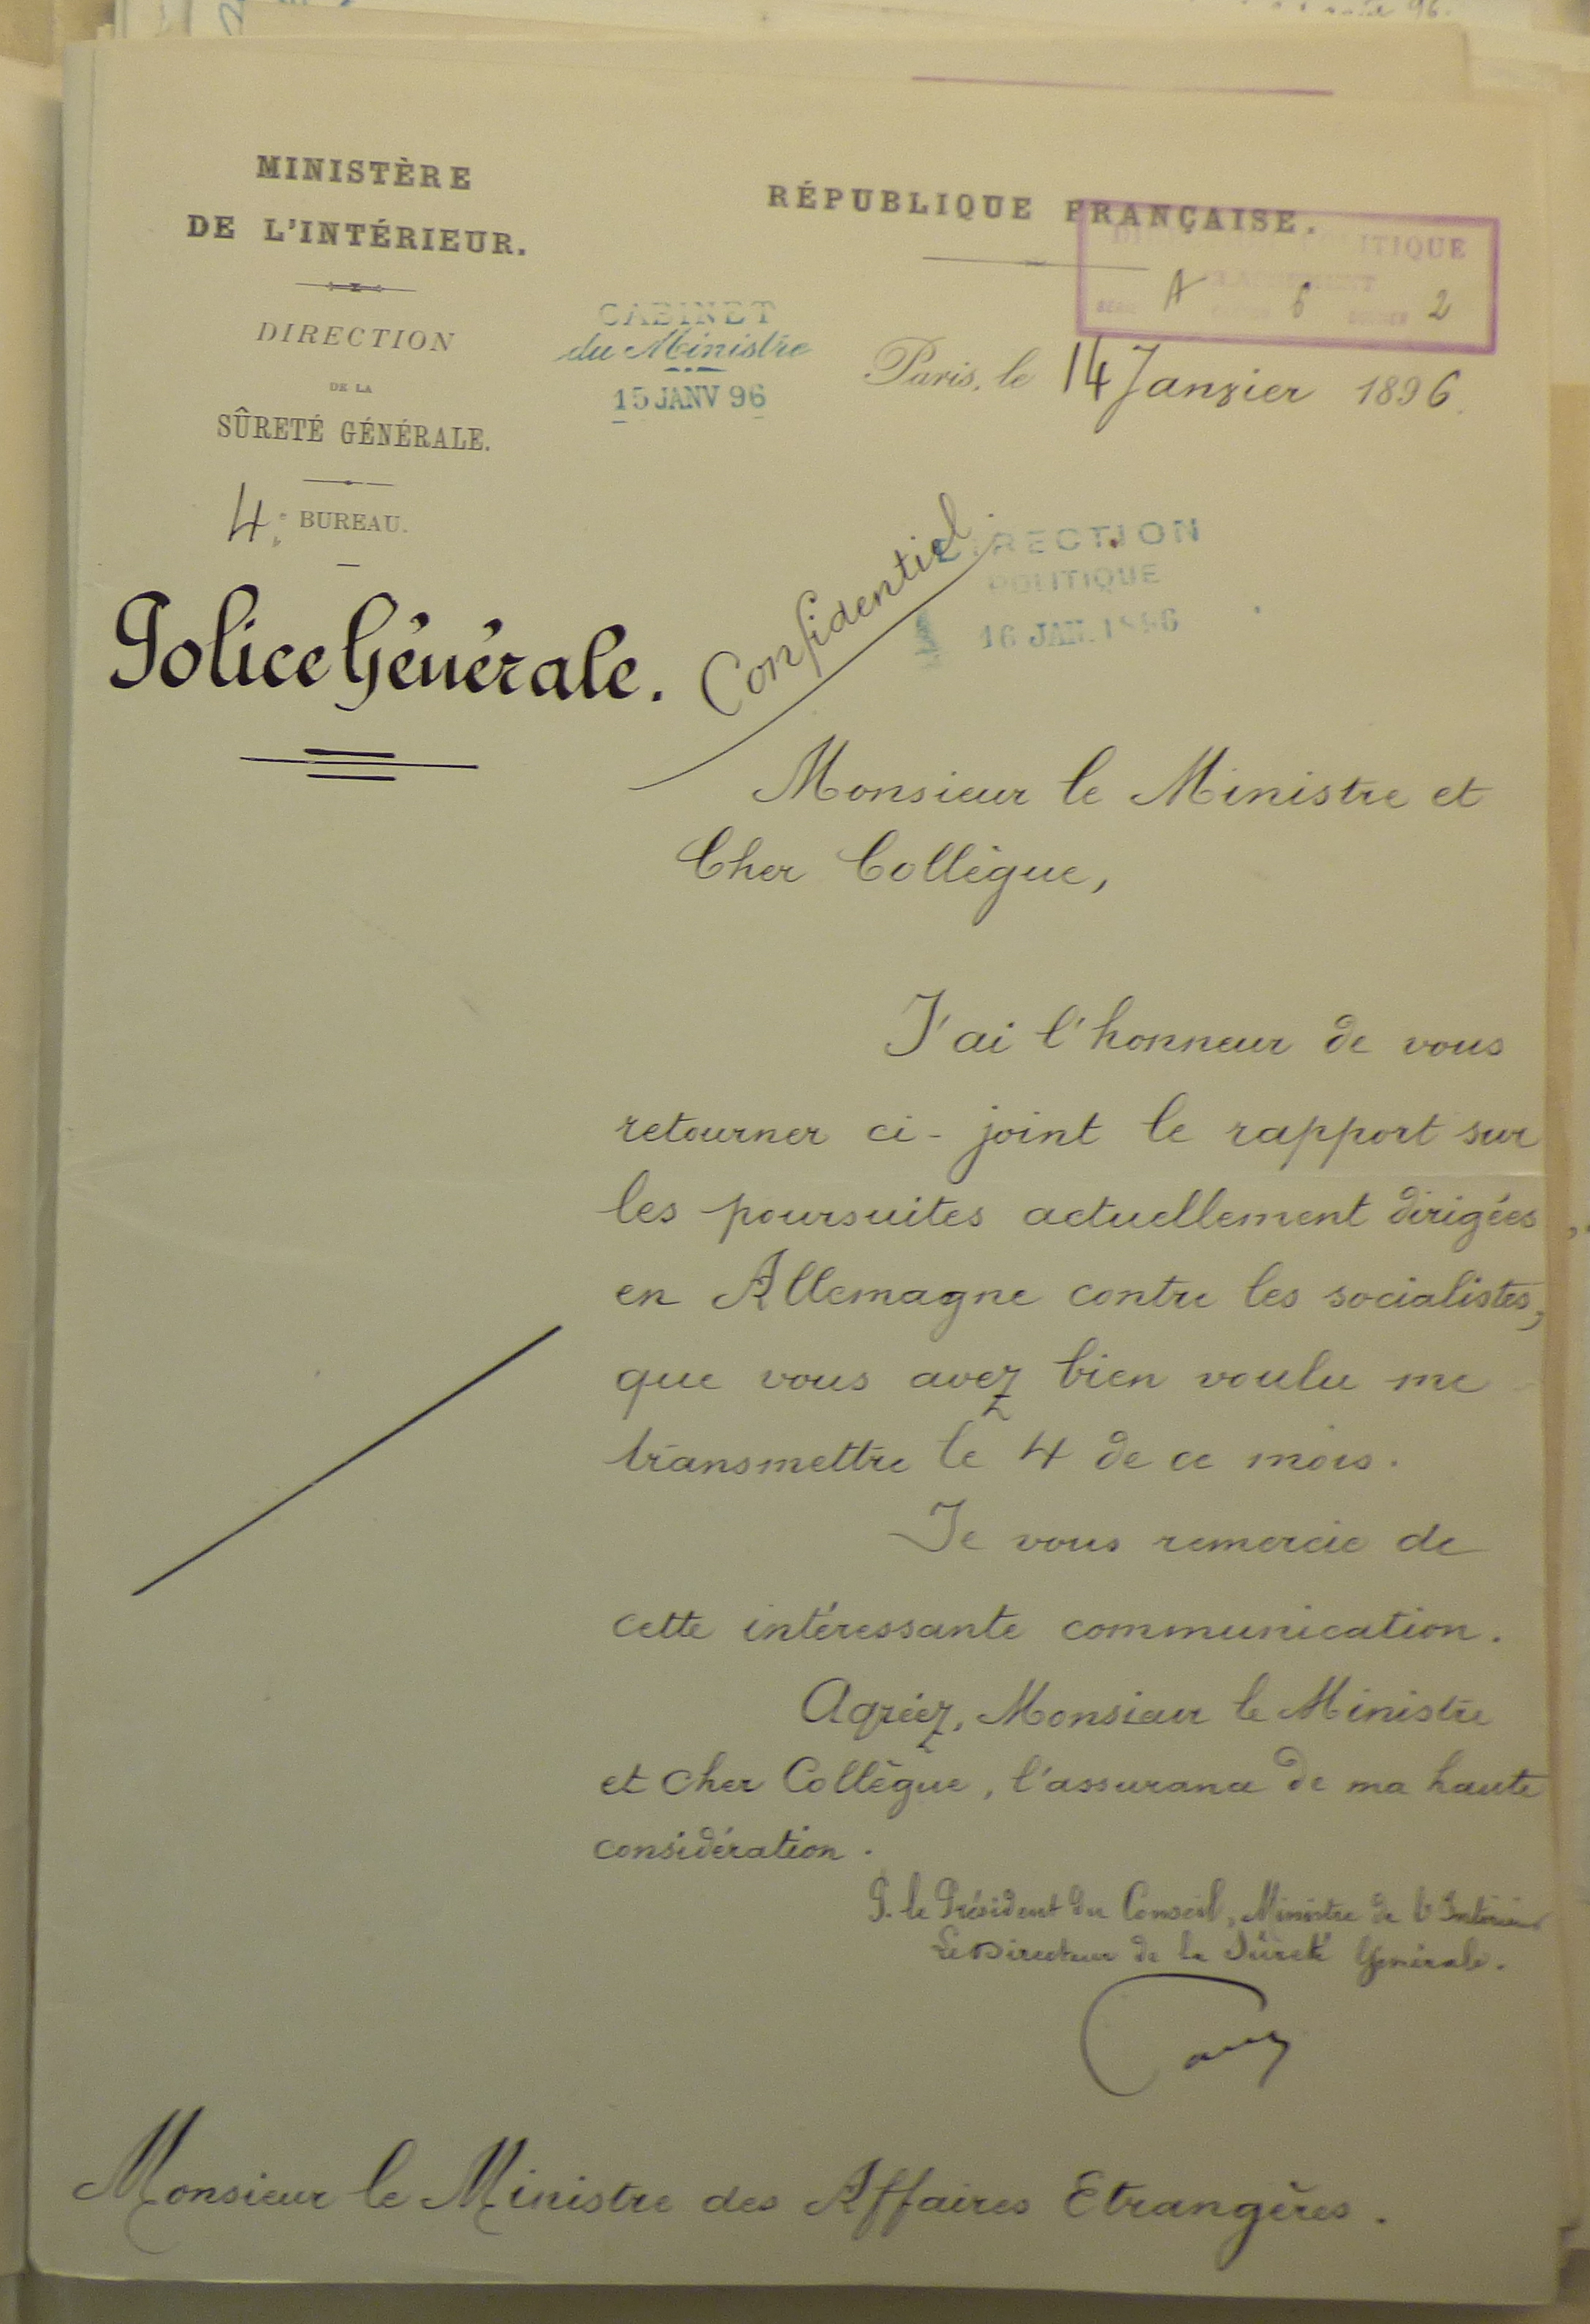 MINISTÈRE
DE L'INTÉRIEUR.
DIRECTION
DE LA
SÛRETÉ GÉNÉRALE.
4e BUREAU.
Police Générale.
RÉPUBLIQUE FRANÇAISE.
POLITIQUE
A 2
CABINET
du Ministre
15 JANV 96
Paris, le 14 Janvier 1896.
Confidentiel
DIRECTION
POLITIQUE
16 JAN. 1896
Monsieur le Ministre et
Cher Collègue,
J'ai l'honneur de vous
retourner ci-joint le rapport sur
les poursuites actuellement dirigées
en Allemagne contre les socialistes,
que vous avez bien voulu me
transmettre le 4 de ce mois.
Je vous remercie de
cette intéressante communication.
Agréez, Monsieur le Ministre
et cher Collègue, l'assurance de ma haute
considération.
P. le Président du Conseil, Ministre de l'Intérieur
Le Directeur de la Sûreté Générale.
Monsieur le Ministre des Affaires Etrangères.